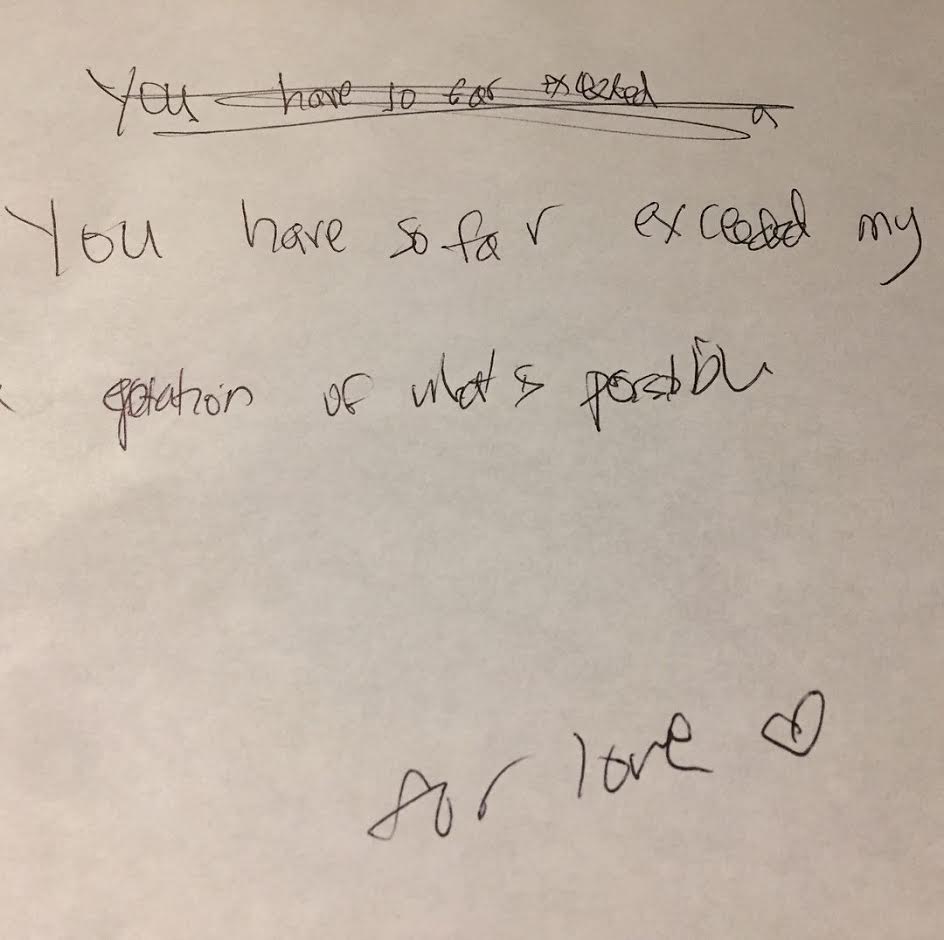 You have so far exceeded a
You have so far exceeded my
of what's possible
for love ♡